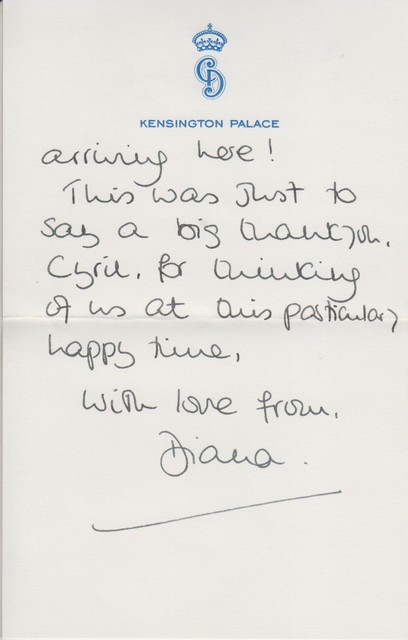 CD
KENSINGTON PALACE
arriving here!
This was just to
say a big thankyou,
Cyril, for thinking
of us at this particularly
happy time,
With love from,
Diana.